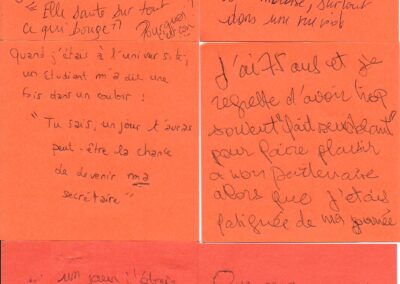 "Elle saute sur tout
ce qui bouge"!
Pourquoi
surtout
dans un
Quand j'étais à l'université,
un étudiant m'a dit une
fois dans un couloir :
"Tu sais, un jour t'auras
peut-être la chance
de devenir ma
secrétaire"
J'ai 75 ans et je
regrette d'avoir trop
souvent "fait semblant"
pour faire plaisir
à mon partenaire
alors que j'étais
fatiguée de ma journée
un jour j'étais